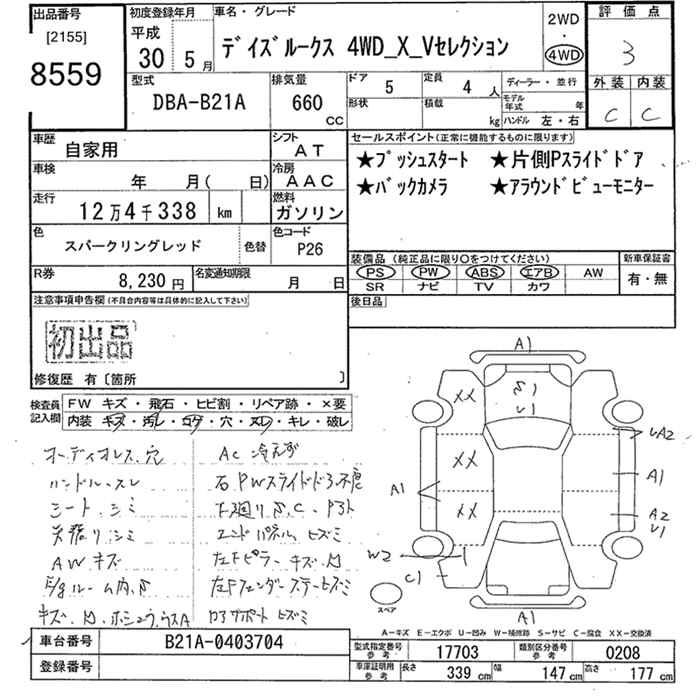 出品番号
[2155]
8559
初度登録年月
平成
30 5月
車名・グレード
デイズルークス 4WD_X_Vセレクション
2WD
・
4WD
評価点
3
外装 内装
C C
型式
DBA-B21A
排気量
660 CC
ドア 5
形状
定員 4 人
積載 kg
ディーラー・並行
モデル年式 年
ハンドル 左・右
車歴 自家用
シフト AT
車検 年 月( 日)
冷房 AAC
走行 12万4千338 km
燃料 ガソリン
色 スパークリングレッド 色替
色コード P26
R券 8,230円
名変通知期限 月 日
セールスポイント(正常に機能するものに限ります)
★プッシュスタート ★片側Pスライドドア
★バックカメラ ★アラウンドビューモニター
装備品 (純正品に限り○をつけてください)
PS PW ABS エアB AW
SR ナビ TV カワ
新車保証書
有・無
後日品
注意事項申告欄(不具合内容等は具体的に記入して下さい)
初出品
修復歴 有〔箇所 〕
検査員記入欄
FW キズ・飛石・ヒビ割・リペア跡・×要
内装 キズ・汚レ・コゲ・穴・スレ・キレ・破レ
オーディオレス、穴
ハンドル、スレ
シート、シミ
天張り、シミ
AW キズ
E/gルーム内、S
AC 冷えず
右PWスライドドア不良
下廻りS、C、Pアト
エンドパネル ヒズミ
左Fピラー キズ、凹
左Fフェンダーステーヒズミ
コアサポート ヒズミ
A1
XX
S1
U1
XX
XX
A1
UA2
A1
A2
U1
W2
C1
A1
スペア
A-キズ E-エクボ U-凹み W-補修跡 S-サビ C-腐食 XX-交換済
車台番号 B21A-0403704
登録番号
型式指定番号 参考 17703
類別区分番号 参考 0208
車庫証明用 参考 長さ 339 cm 幅 147 cm 高さ 177 cm